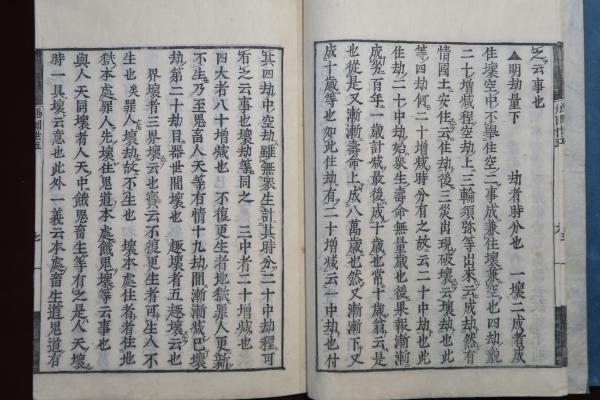 之云事也
▲明劫量下　劫者時分也　一壊二成者成
住壊空中不擧住空二事成兼住壊兼空也四劫貌
二十増減程空劫上三輪須弥等出来云成劫然有
情國土安住云住劫後三災出現破壊云壊劫也此
等四劫何二十増減時分有之故云二十中劫也此
住劫二十中劫始衆生壽命無量歳也後果報漸漸
成劣百年一歳計減最後成十歳也常十歳翁云是
也從是又漸漸壽命上成八萬歳也然又漸漸下又
成十歳等也如此住劫有二十増減云一中劫也付
其四劫中空劫雖無衆生計其時分二十中劫程可
有之云事也壊劫等同之　三中者二十増減也
四大者八十増減也　不復更生者地獄罪人更新
不生乃至鬼畜人天等有情十九劫間漸漸減已壊
劫第二十劫目器世間壊也　趣壊者五趣壊云也
界壊者三界壊云也　云不復更生者可生人不
生也矣罪人壊劫故不生也　壊本處住者者住地
獄本處罪人先壊住鬼道本處餓鬼壊等云事也
與人天同壊者人天中餓鬼畜生等有之是人天壊
時一具壊云意也此外一義云本處畜生道鬼道有